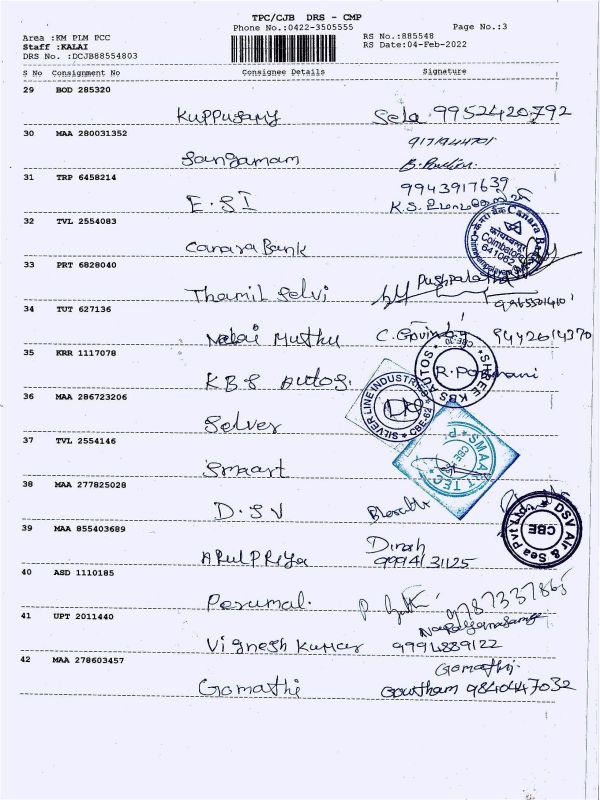 TPC/CJB DRS - CMP
Phone No.:0422-3505555 Page No.:3
Area :KM PLM PCC RS No.:885548
Staff :KALAI RS Date:04-Feb-2022
DRS No. :DCJB88554803
S No Consignment No Consignee Details Signature
29 BOD 285320
Kuppusamy Sela 9952420792
30 MAA 280031352
Sangamam
31 TRP 6458214 9943917639
E.S.I K.S.
32 TVL 2554083
Canara Bank
Canara Bank Coimbatore 641062
33 PRT 6828040
Thamil Selvi Pushpalatha
34 TUT 627136
Nelai Muthu C. Govind 9442614370
35 KRR 1117078
KBS Autos. R.
SREE KBS AUTOS CBE-30
36 MAA 286723206
Selver
SILVER LINE INDUSTRIES CBE-62
37 TVL 2554146
Smaart
SMAART TEC CBE
38 MAA 277825028
D.S.V Bharathi
DSV Air & Sea Pvt Ltd. CBE
39 MAA 855403689 Dinesh
Arulpriya 9994131125
40 ASD 1110185
Perumal. 9787337865
41 UPT 2011440
Vignesh Kumar 9994889122
42 MAA 278603457 Gomathi
Gomathi Gowtham 9840447032